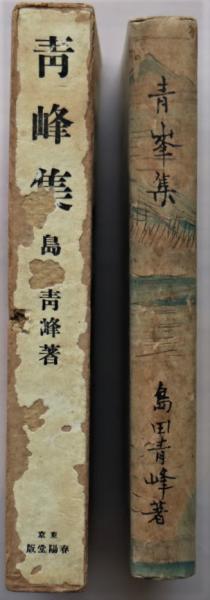 靑峰集
島 靑峰著
東京
春陽堂版
青峯集
島田青峰著